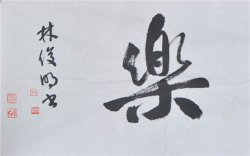 樂
林俊明书